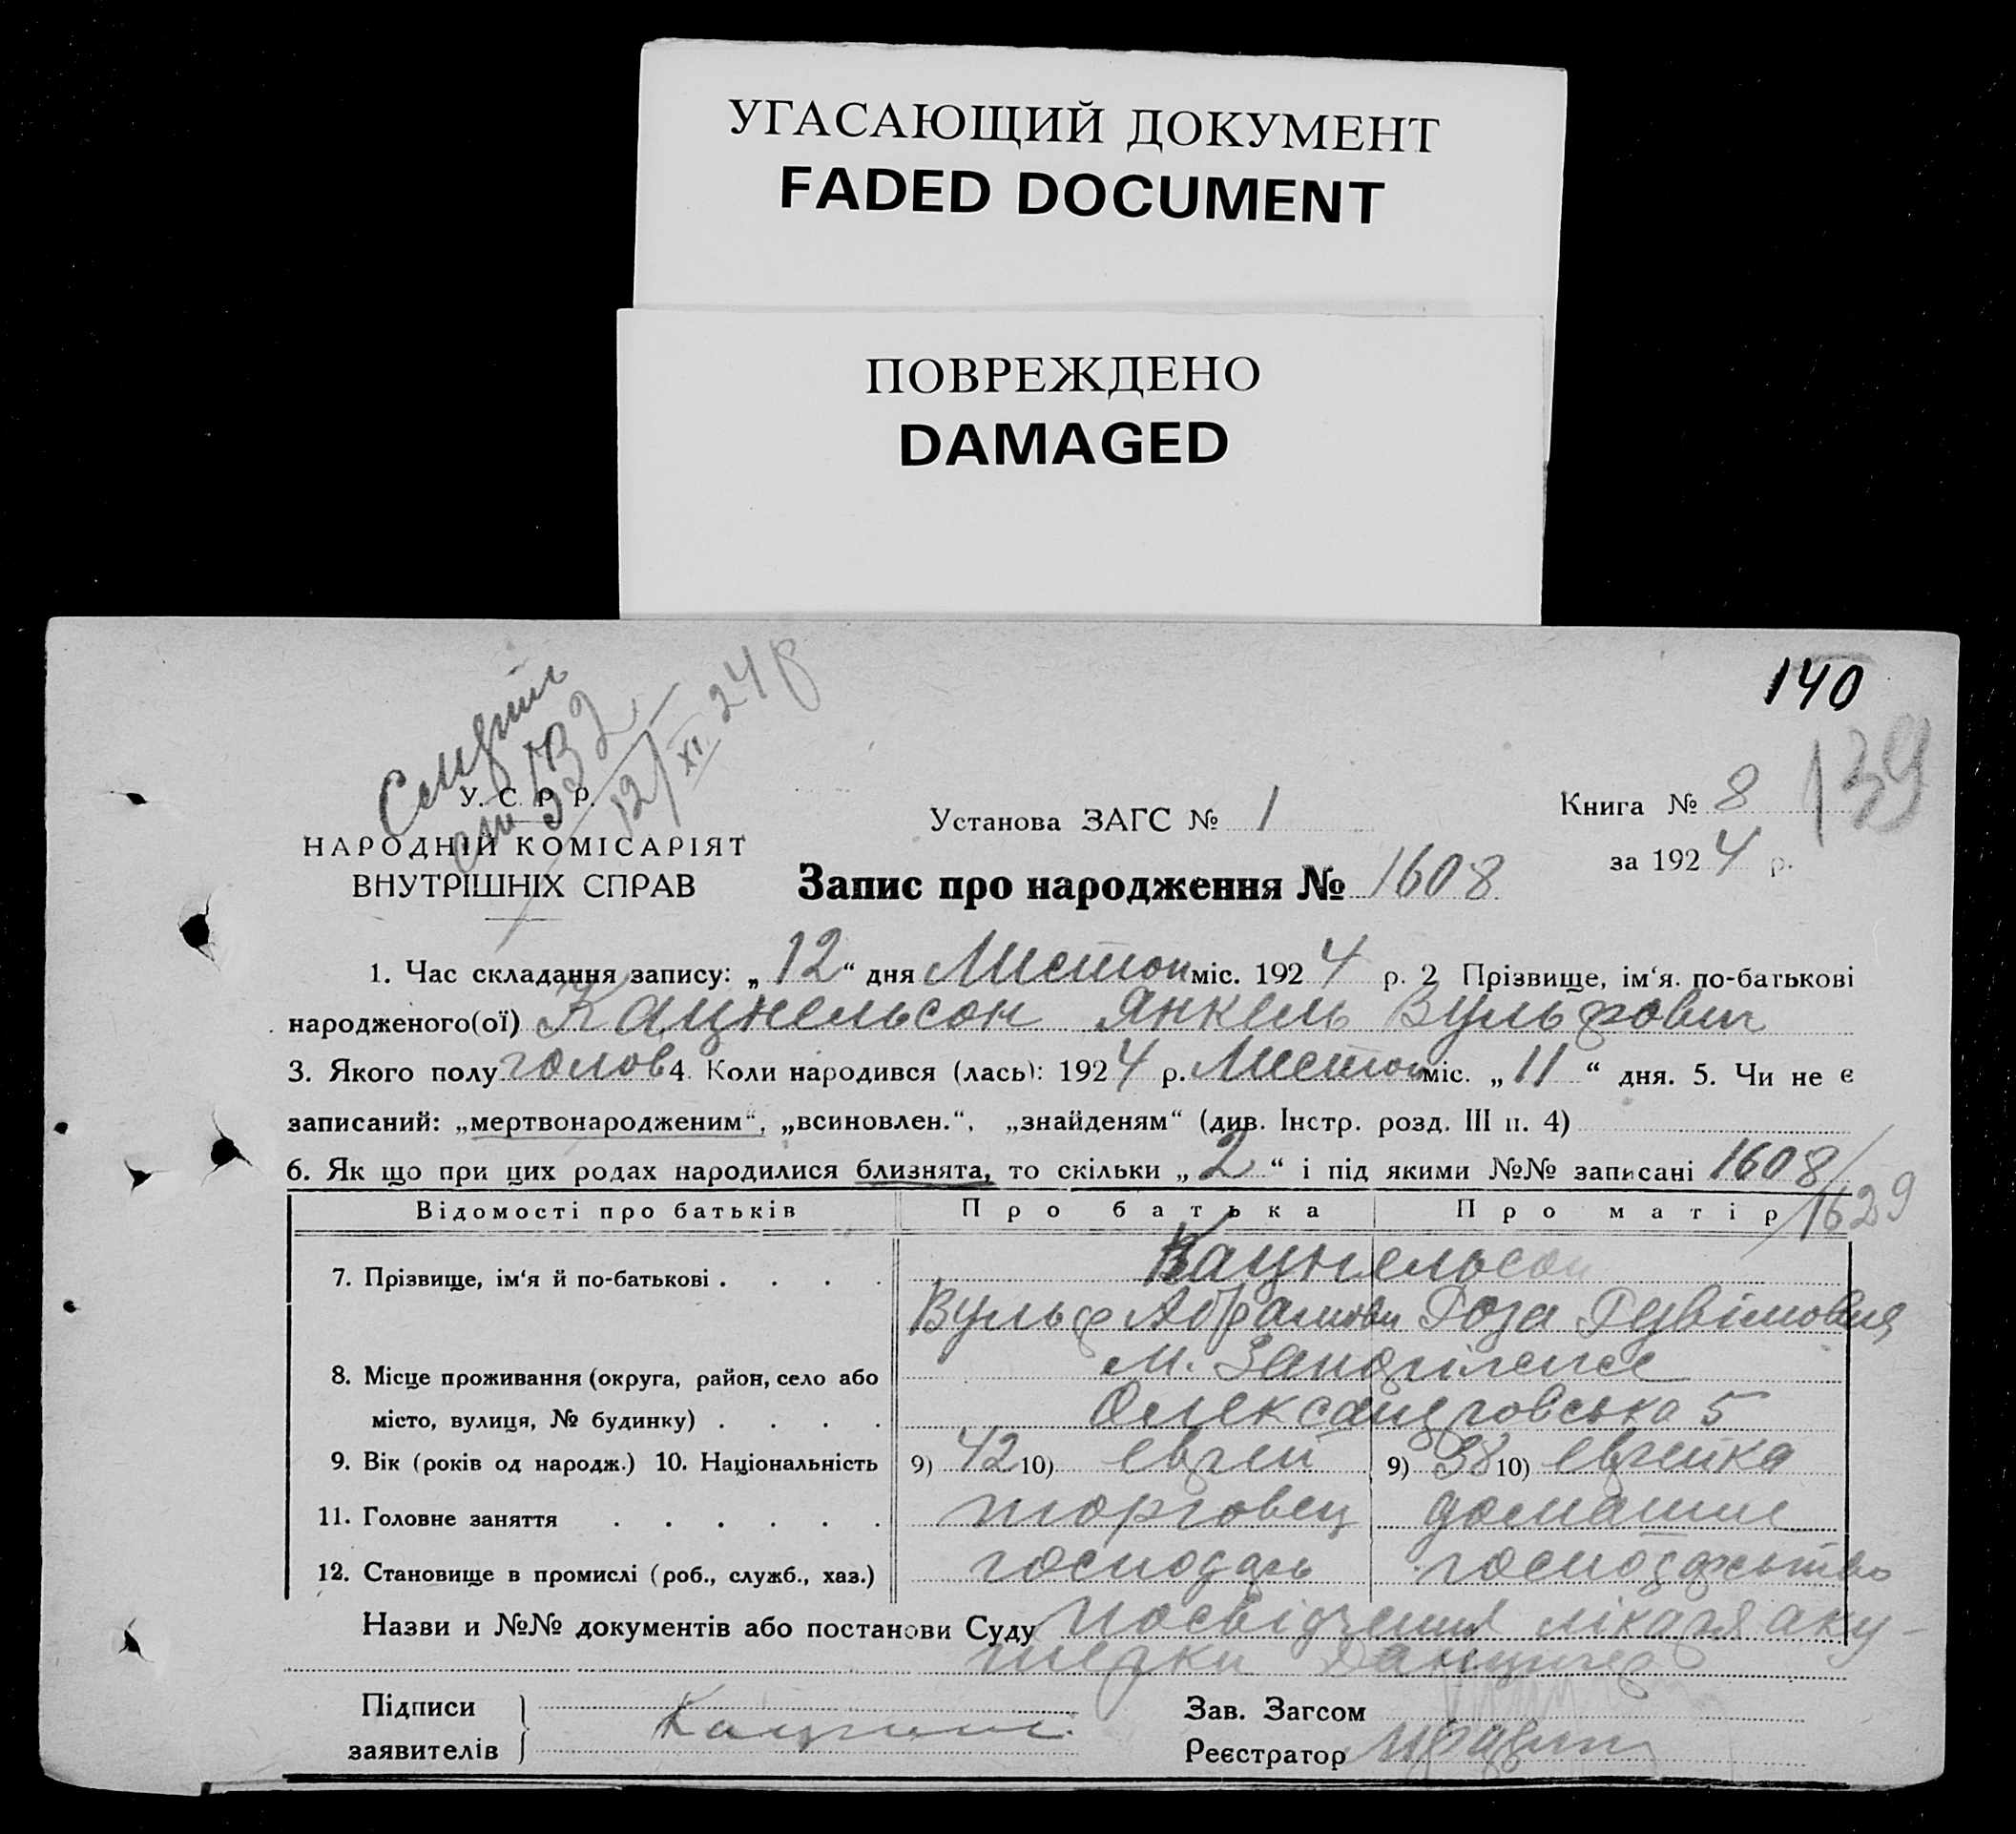 УГАСАЮЩИЙ ДОКУМЕНТ
FADED DOCUMENT
ПОВРЕЖДЕНО
DAMAGED
140
139
12/XI 24 р
У. С. Р. Р.
НАРОДНІЙ КОМІСАРІЯТ
ВНУТРІШНІХ СПРАВ
Установа ЗАГС № 1
Книга № 8
за 1924 р.
Запис про народження № 1608
1. Час складання запису: „12“ дня Листоп міс. 1924 р. 2 Прізвище, ім‘я. по-батькові
народженого(ої) Кацнельсон Янкель Вульфович
3. Якого полу голов 4. Коли народився (лась): 1924 р. Листоп міс. „11“ дня. 5. Чи не є
записаний: „мертвонародженим“, „всиновлен.“, „знайденям“ (див. Інстр. розд. III п. 4)
6. Як що при цих родах народилися близнята, то скільки „2“ і під якими №№ записані 1608/1629
Відомості про батьків Про батька Про матір
7. Прізвище, ім‘я й по-батькові . . . . Кацнельсон
Вульф Абрамови Роза
8. Місце проживання (округа, район, село або м.
місто, вулиця, № будинку) . . . . Олександровська 5
9. Вік (років од народж.) 10. Національність 9) 42 10) еврей 9) 38 10) еврейка
11. Головне заняття . . . . . . торговец домашнє
12. Становище в промислі (роб., служб., хаз.) господарь господарство
Назви и №№ документів або постанови Суду посвідчення лікаря аку-
шерки
Підписи
заявителів
Зав. Загсом
Реєстратор